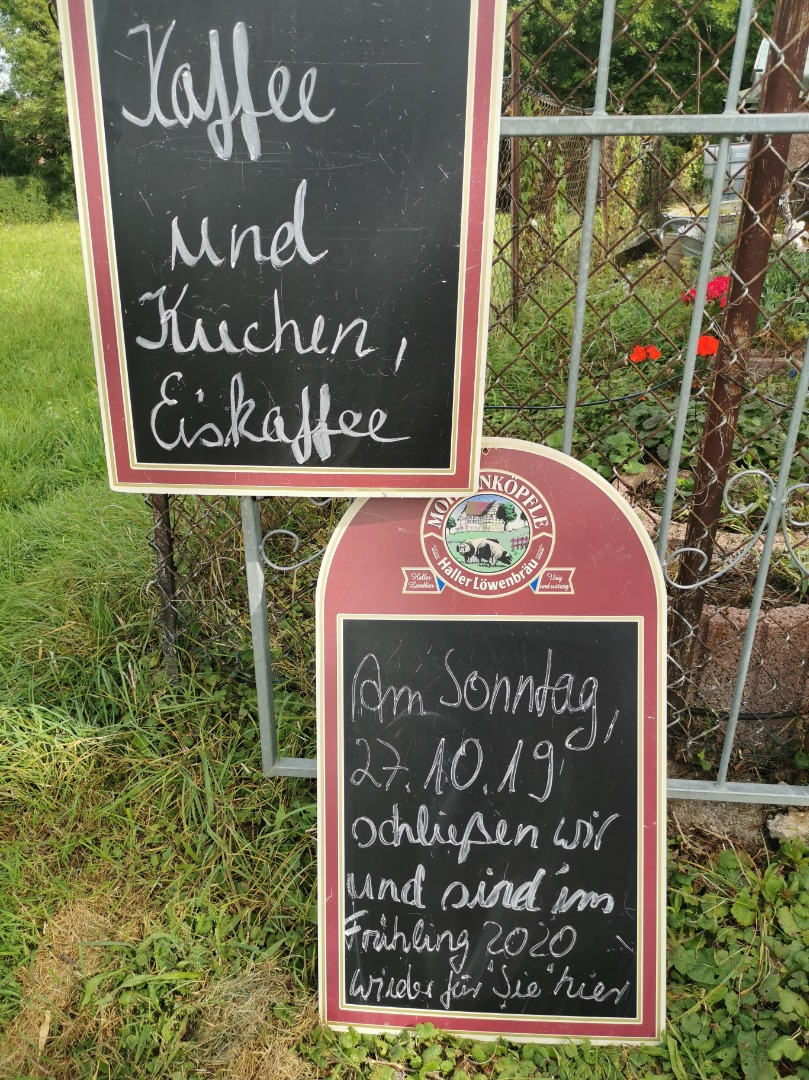 Kaffee
und
Kuchen,
Eiskaffee
Haller Löwenbräu
Am Sonntag,
27.10.19
schließen wir
und sind im
Frühling 2020
wieder für "Sie" hier